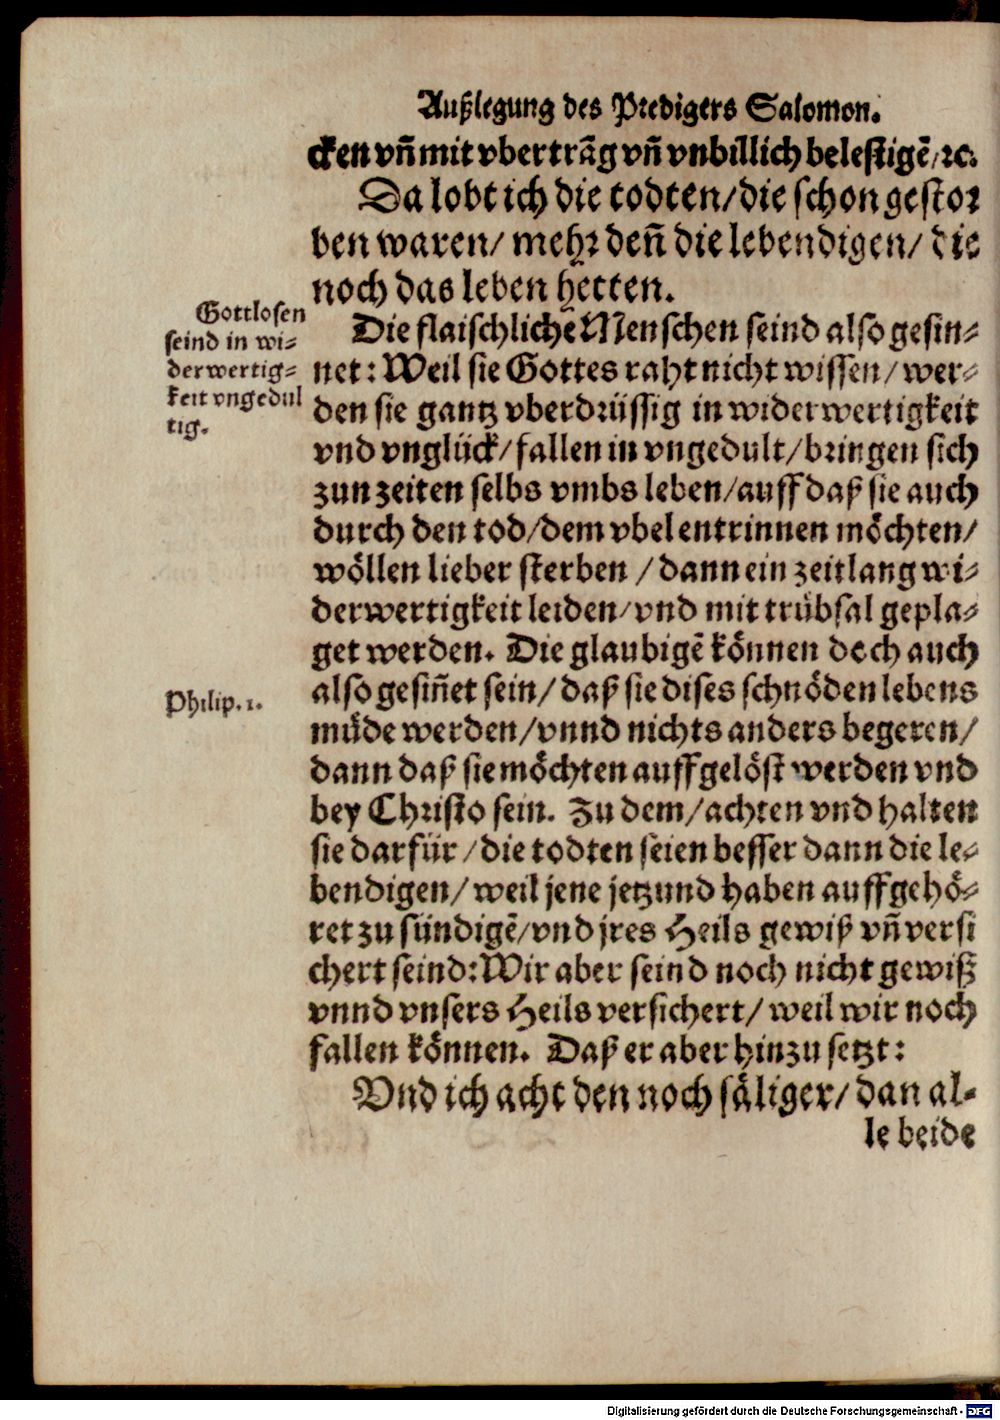 Außlegung des Predigers Salomon.
cken vñ mit vbertrāg vñ vnbillich belestigē/ꝛc.
Da lobt ich die todten/die schon gestor
ben waren/ mehr deñ die lebendigen/ die
noch das leben hetten.
Gottlosen
seind in wi-
derwertig-
keit vngedul
tig.
Die flaischlichē Menschen seind also gesin-
net: Weil sie Gottes raht nicht wissen/ wer-
den sie gantz vberdrüssig in widerwertigkeit
vnd vnglück/ fallen in vngedult/ bringen sich
zun zeiten selbs vmbs leben/auff daß sie auch
durch den tod/dem vbel entrinnen möchten/
wöllen lieber sterben / dann ein zeitlang wi-
derwertigkeit leiden/vnd mit trübsal gepla-
get werden. Die glaubigē können doch auch
Philip. 1.
also gesiñet sein/ daß sie dises schnöden lebens
müde werden/vnnd nichts anders begeren/
dann daß sie möchten auffgelöst werden vnd
bey Christo sein. Zu dem/achten vnd halten
sie darfür /die todten seien besser dann die le-
bendigen/ weil jene jetzund haben auffgehö-
ret zu sündigē/vnd jres Heils gewiß vñ versi
chert seind: Wir aber seind noch nicht gewiß
vnnd vnsers Heils versichert/ weil wir noch
fallen können. Daß er aber hinzu setzt:
Vnd ich acht den noch säliger/ dan al-
le beide
Digitalisierung gefördert durch die Deutsche Forschungsgemeinschaft - DFG